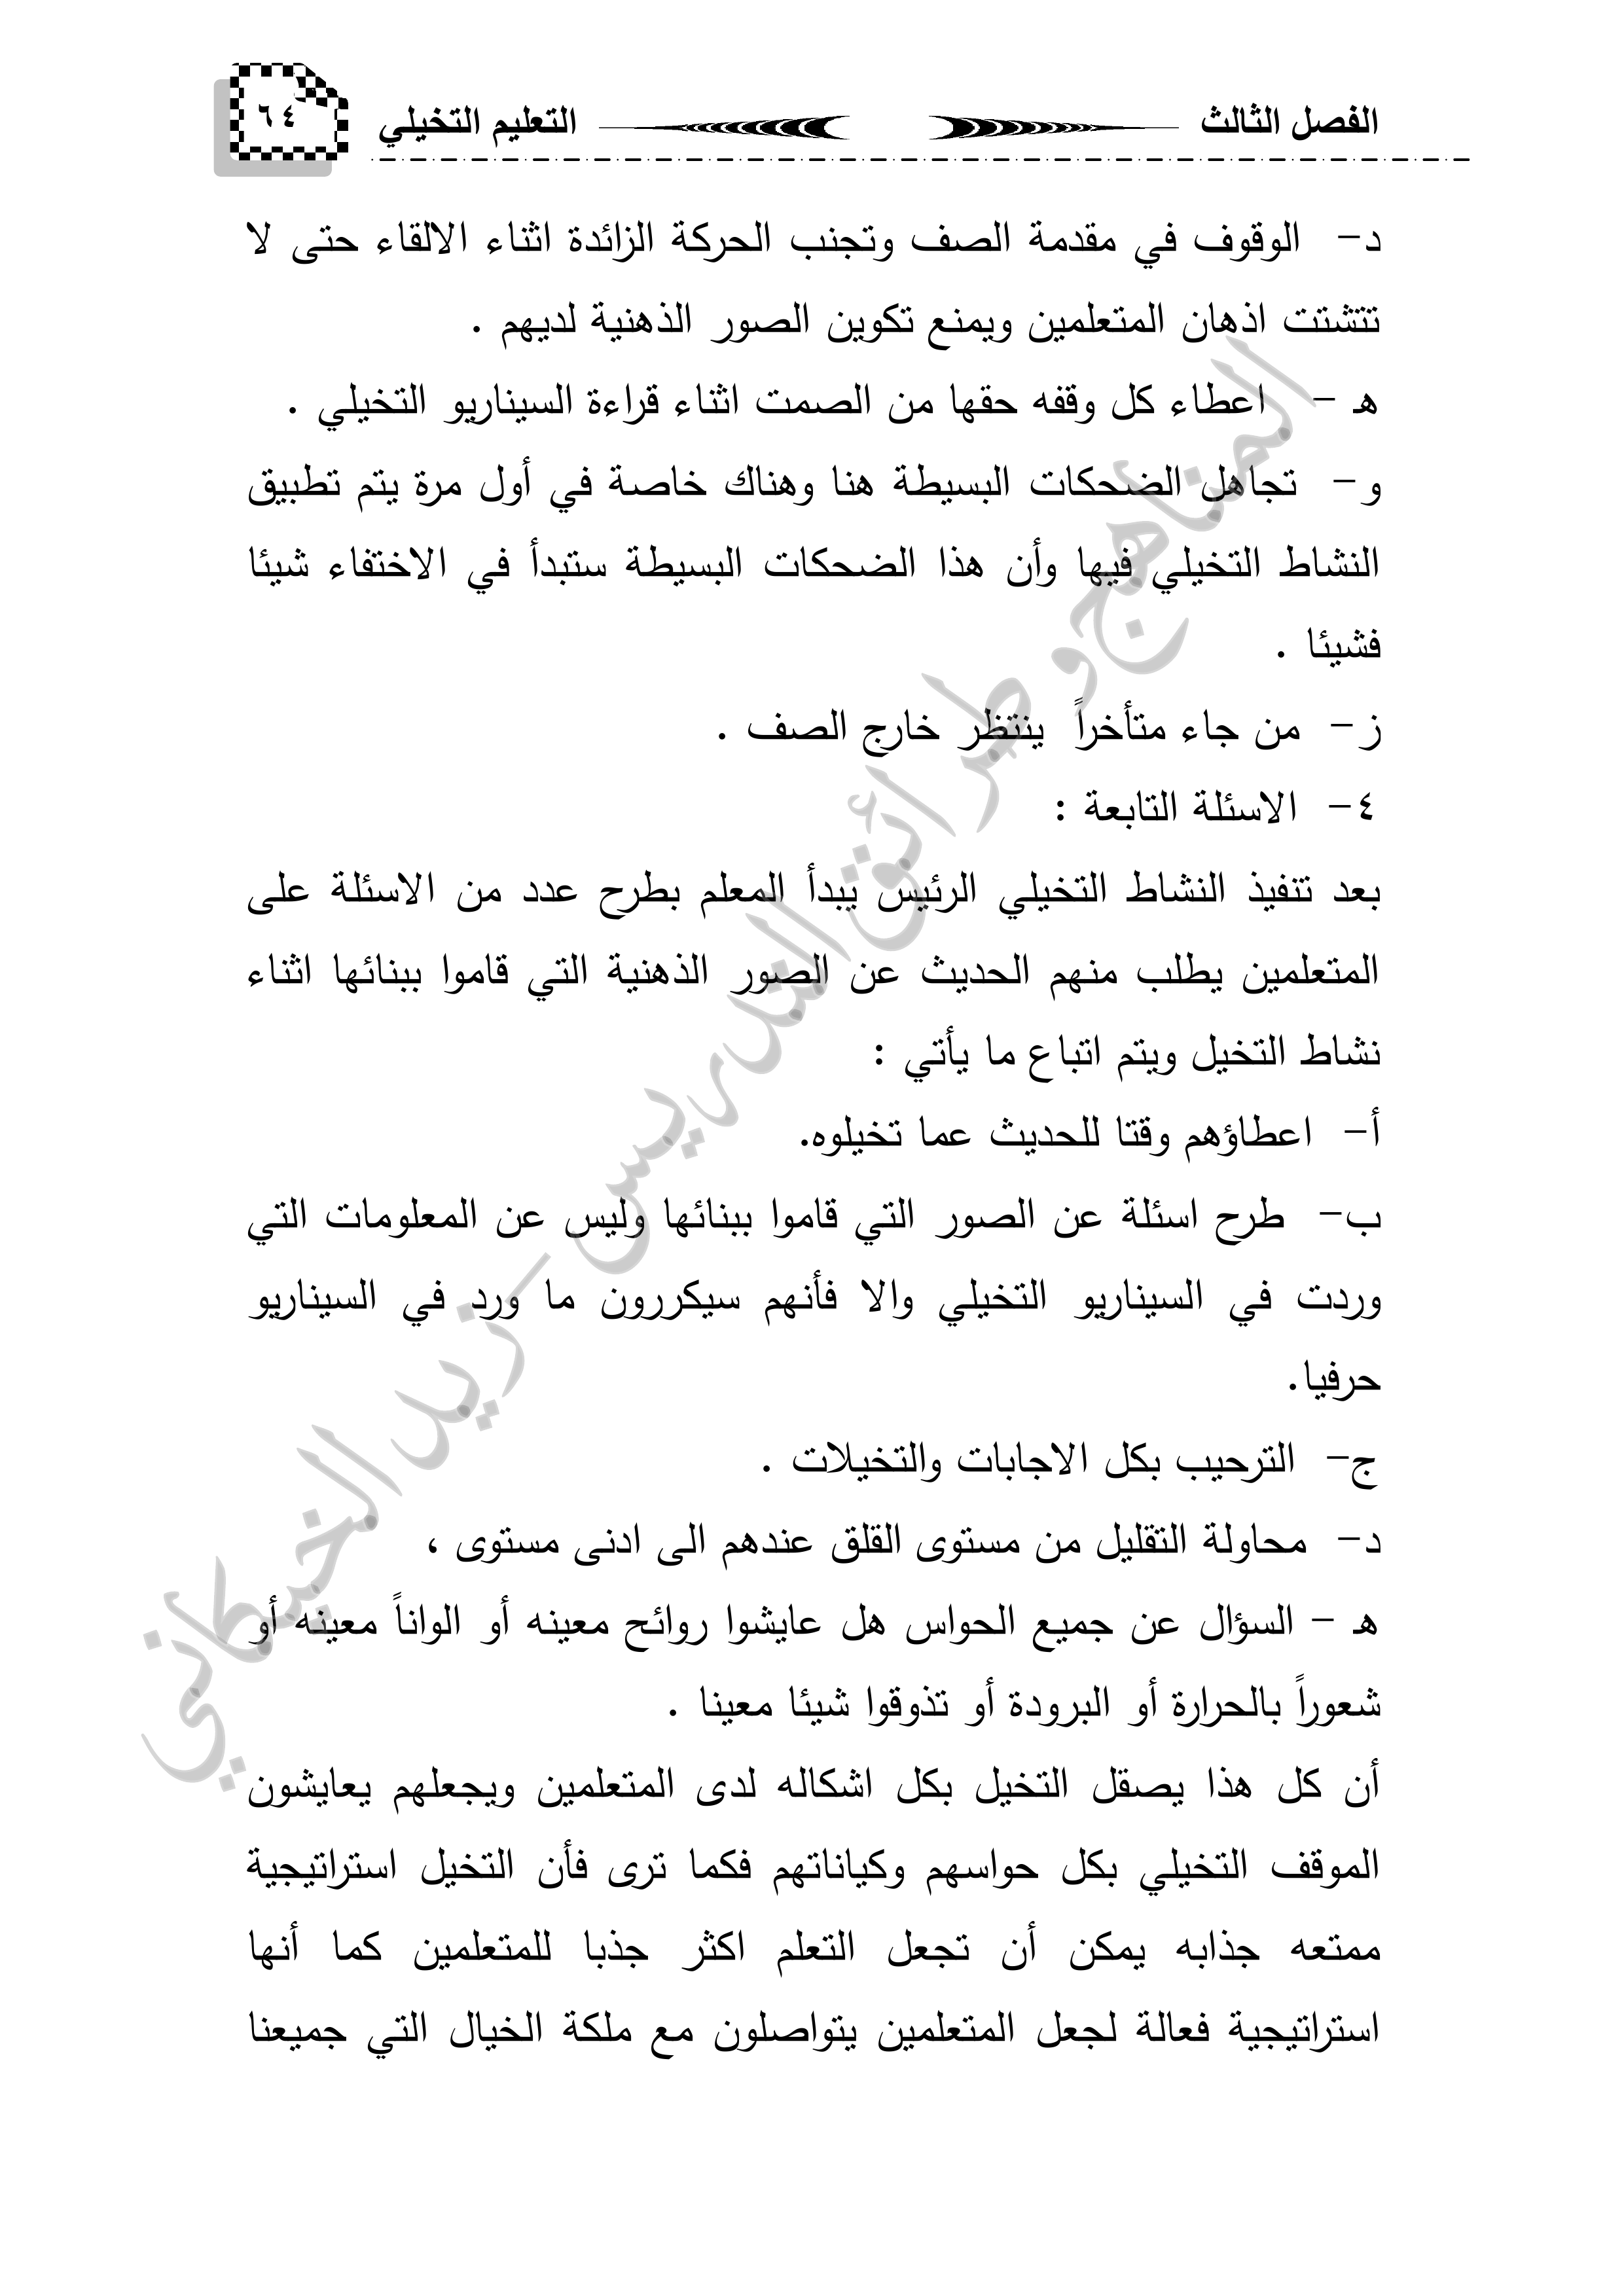 الفصل الثالث
التعليم التخيلي
٦٤
د- الوقوف في مقدمة الصف وتجنب الحركة الزائدة اثناء الالقاء حتى لا
تتشتت اذهان المتعلمين ويمنع تكوين الصور الذهنية لديهم .
هـ - اعطاء كل وقفه حقها من الصمت اثناء قراءة السيناريو التخيلي .
و- تجاهل الضحكات البسيطة هنا وهناك خاصة في أول مرة يتم تطبيق
النشاط التخيلي فيها وأن هذا الضحكات البسيطة ستبدأ في الاختفاء شيئا
فشيئا .
ز- من جاء متأخراً ينتظر خارج الصف .
٤- الاسئلة التابعة :
بعد تنفيذ النشاط التخيلي الرئيس يبدأ المعلم بطرح عدد من الاسئلة على
المتعلمين يطلب منهم الحديث عن الصور الذهنية التي قاموا ببنائها اثناء
نشاط التخيل ويتم اتباع ما يأتي :
أ- اعطاؤهم وقتا للحديث عما تخيلوه.
ب- طرح اسئلة عن الصور التي قاموا ببنائها وليس عن المعلومات التي
وردت في السيناريو التخيلي والا فأنهم سيكررون ما ورد في السيناريو
حرفيا.
ج- الترحيب بكل الاجابات والتخيلات .
د- محاولة التقليل من مستوى القلق عندهم الى ادنى مستوى ،
هـ - السؤال عن جميع الحواس هل عايشوا روائح معينه أو الواناً معينه أو
شعوراً بالحرارة أو البرودة أو تذوقوا شيئا معينا .
أن كل هذا يصقل التخيل بكل اشكاله لدى المتعلمين ويجعلهم يعايشون
الموقف التخيلي بكل حواسهم وكياناتهم فكما ترى فأن التخيل استراتيجية
ممتعه جذابه يمكن أن تجعل التعلم اكثر جذبا للمتعلمين كما أنها
استراتيجية فعالة لجعل المتعلمين يتواصلون مع ملكة الخيال التي جميعنا
المناهج وطرائق التدريس - زيد الخيكاني